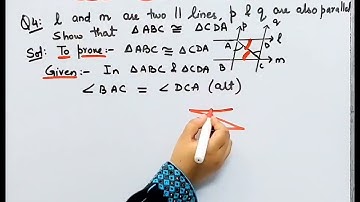 Q4: l and m are two || lines, p & q are also parallel
Show that △ABC ≅ △CDA
Sol: To prove:- △ABC ≅ △CDA
Given:- In △ABC & △CDA
∠BAC = ∠DCA (alt)
p q
A D l
B C m